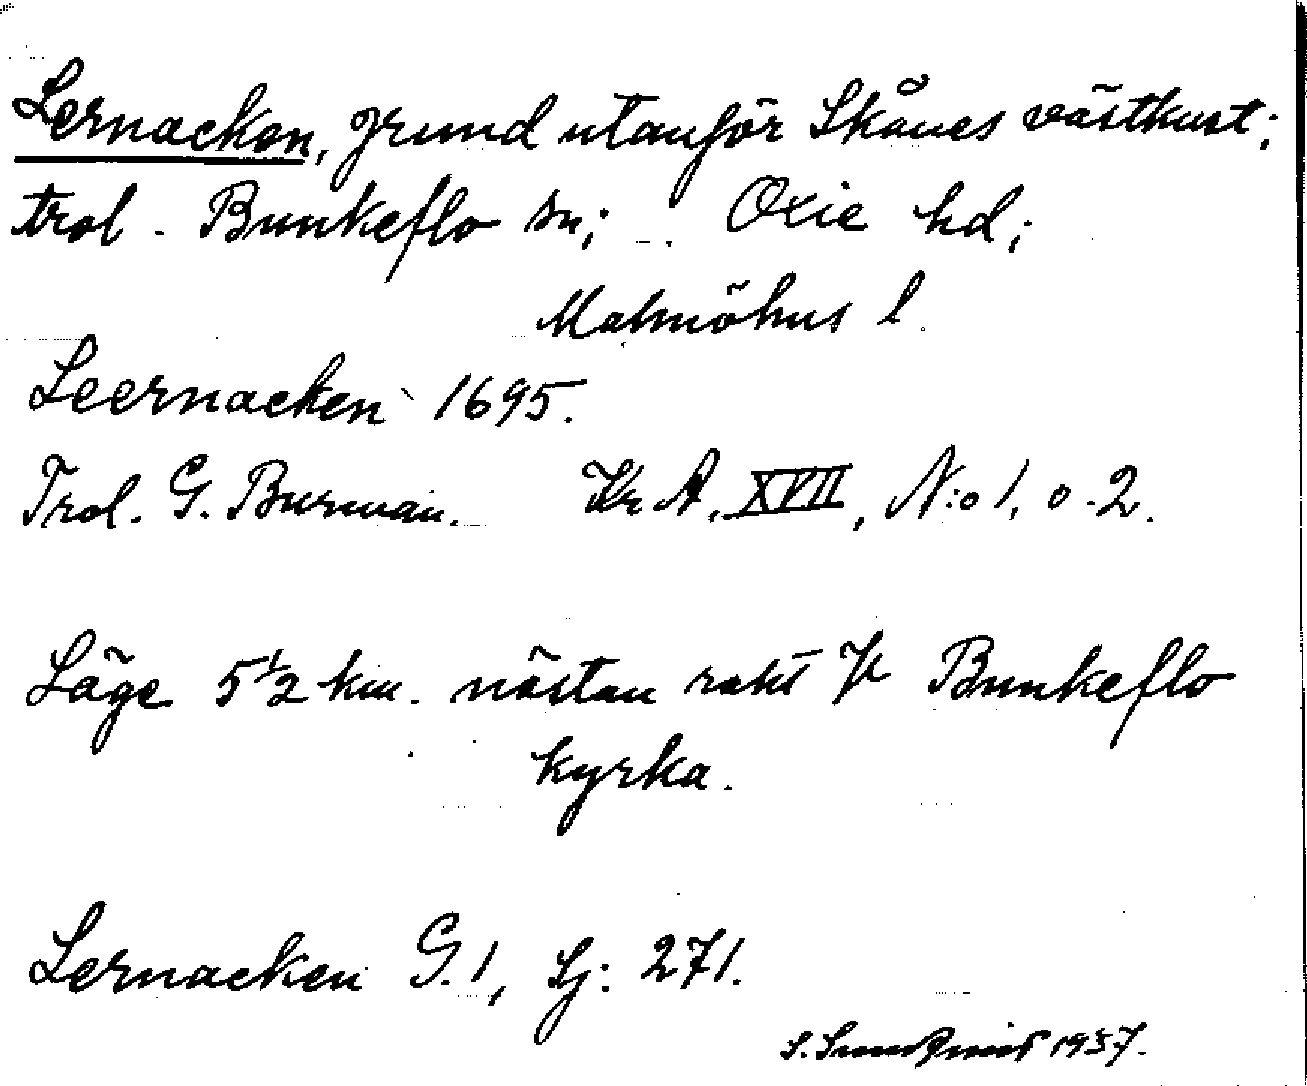 Lernacken, grund utanför Skånes västkust;
trol. Bunkeflo sn; Oxie hd;
Malmöhus l.
Leernacken 1695.
Trol. G. Burman. Kr A. XVII, N:o 1, o. 2.
Läge 5 1/2 km. nästan rakt V Bunkeflo
kyrka.
Lernacken G. 1, Sj: 271.
S. 1937.